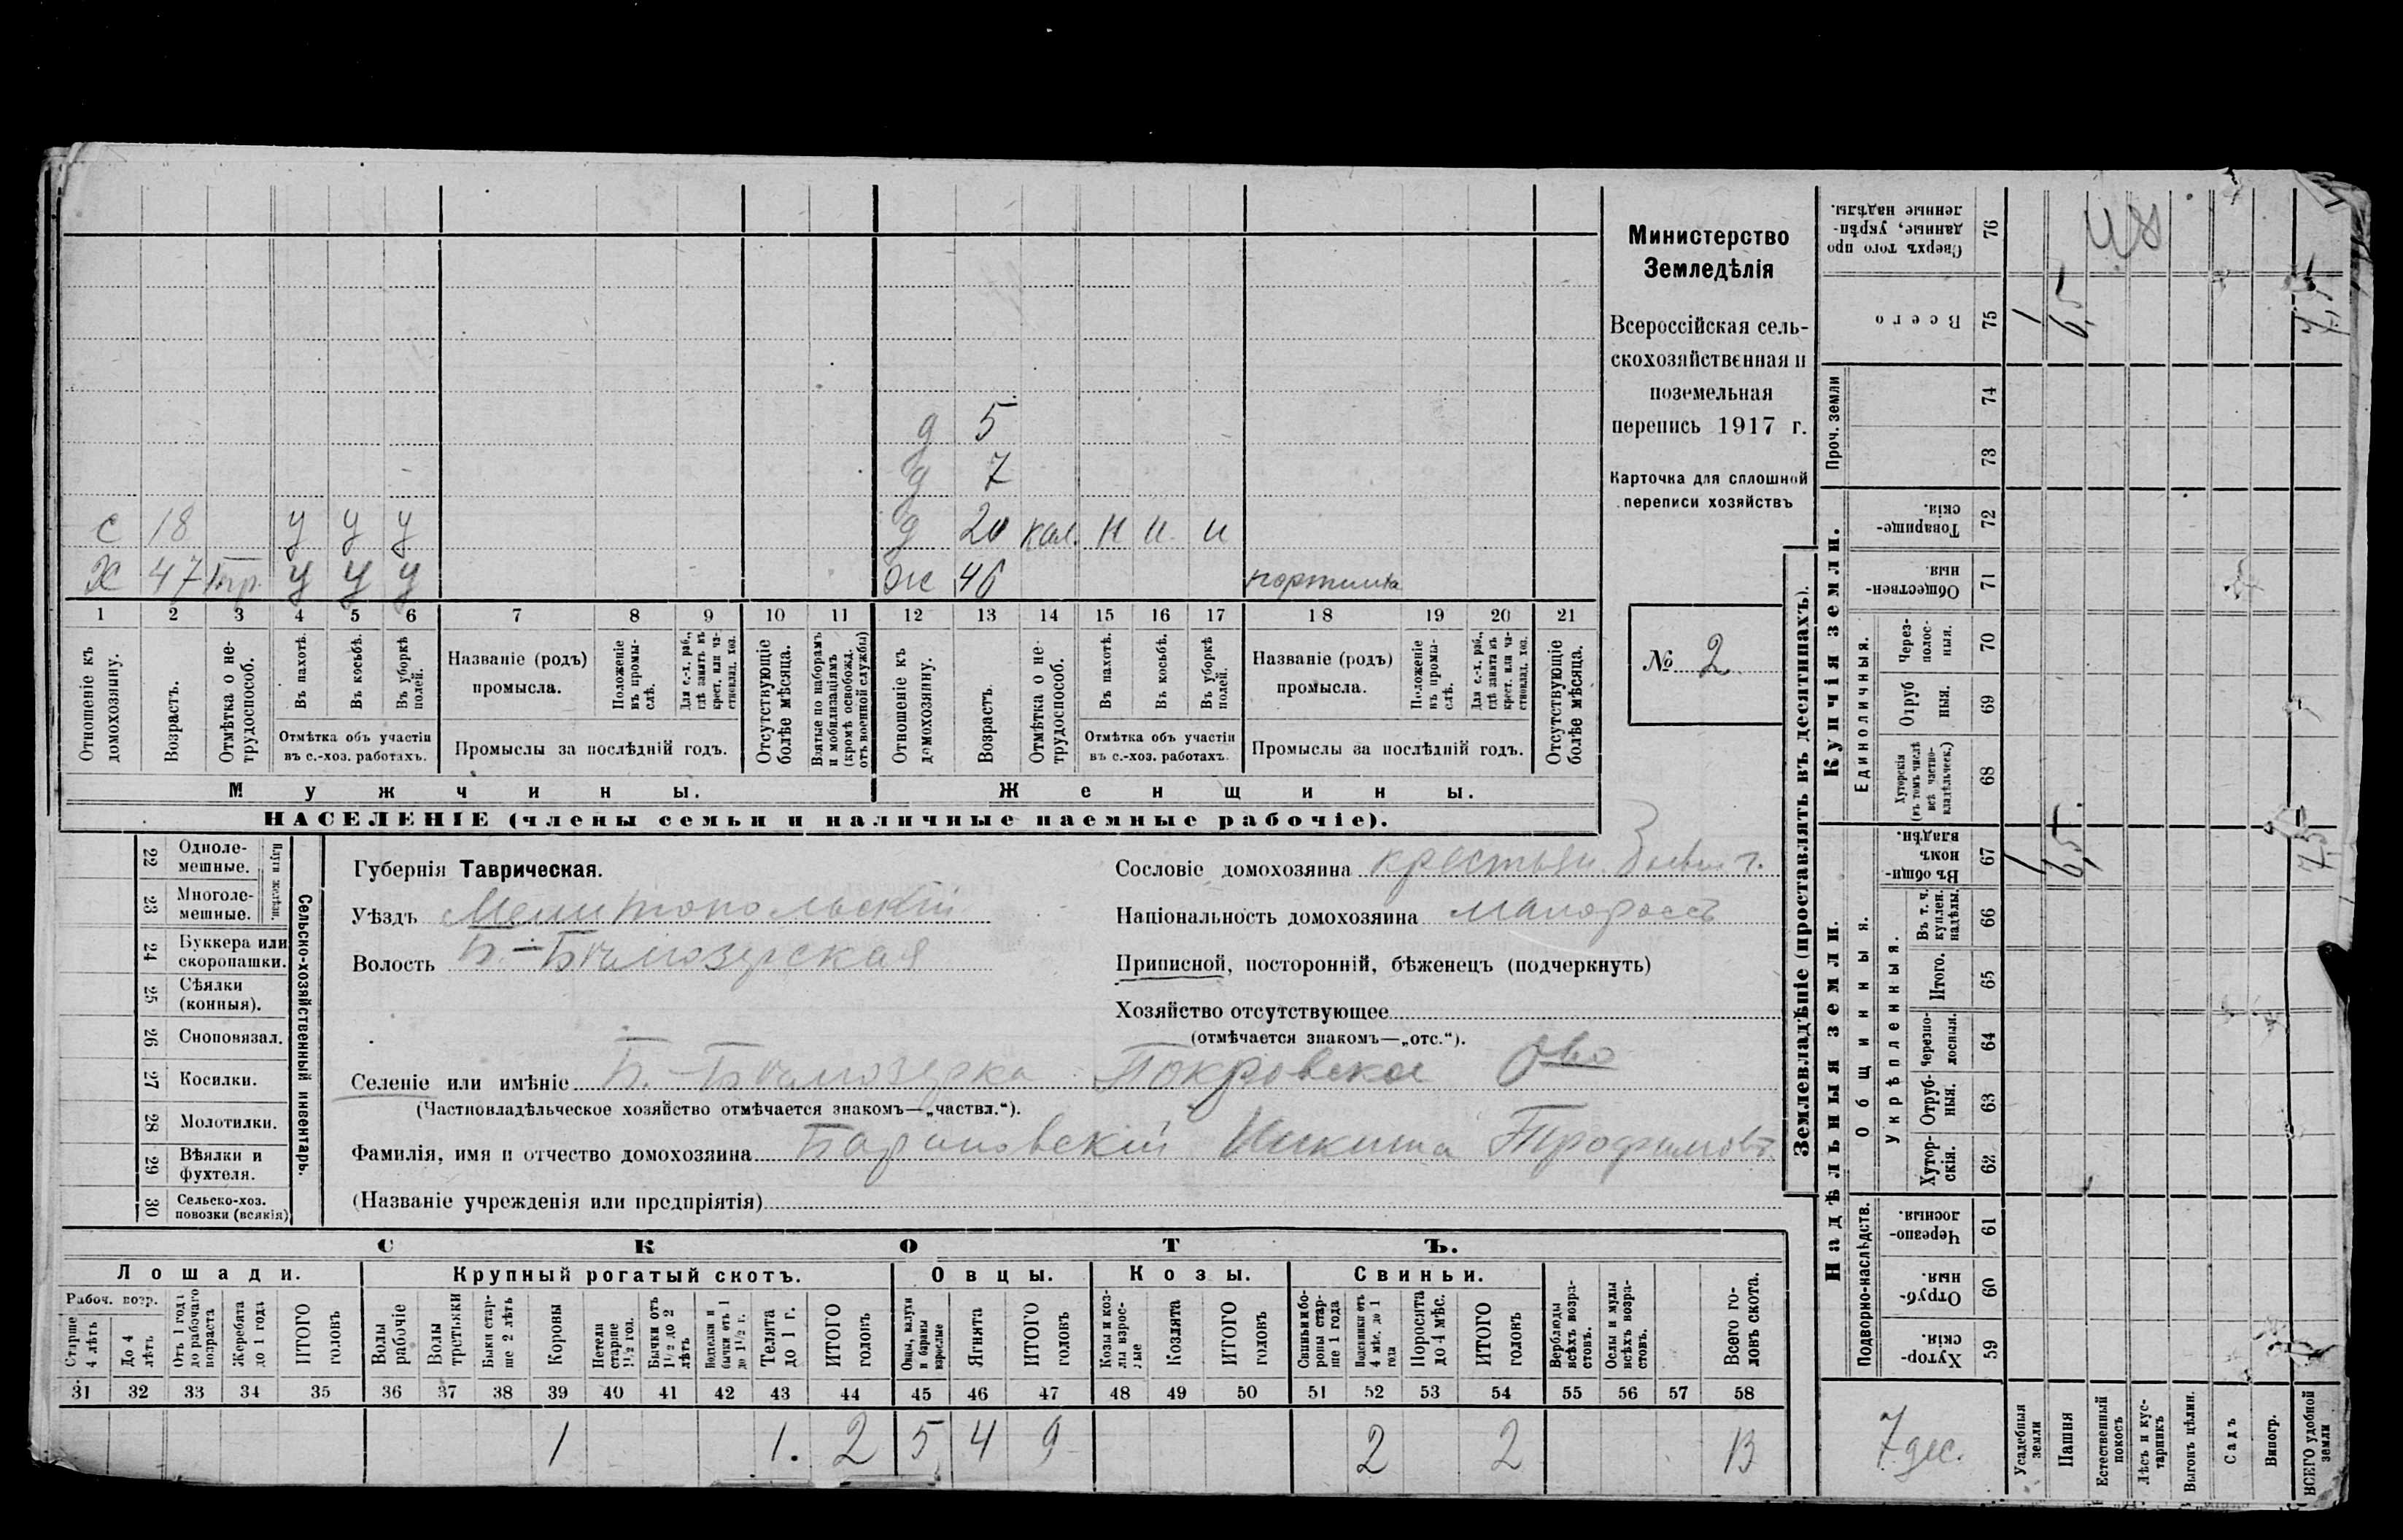 д 5
д 7
с 18 у у у д 20 кал. н н н
Х 47 тр. у у у ж 46 портниха
1 2 3 4 5 6 7 8 9 10 11 12 13 14 15 16 17 18 19 20 21
Отношеніе къ домохозяину.
Возрастъ.
Отмѣтка о не-трудоспособ.
Въ пахотѣ.
Въ косьбѣ.
Въ уборкѣ полей.
Отмѣтка объ участіи
въ с.-хоз. работахъ.
Названіе (родъ)
промысла.
Положеніе въ промы-слѣ.
Для с.-х. раб., гдѣ занятъ въ крест. или ча-стновлад. хоз.
Промыслы за послѣдній годъ.
Отсутствующіе болѣе мѣсяца.
Взятые по наборамъ и мобилизаціямъ (кромѣ освобожд. отъ военной службы)
Отношеніе къ домохозяину.
Возрастъ.
Отмѣтка о не-трудоспособ.
Въ пахотѣ.
Въ косьбѣ.
Въ уборкѣ полей.
Отмѣтка объ участіи
въ с.-хоз. работахъ.
Названіе (родъ)
промысла.
Положеніе въ промы-слѣ.
Для с.-х. раб., гдѣ занята въ крест. или ча-стновлад. хоз.
Промыслы за послѣдній годъ.
Отсутствующіе болѣе мѣсяца.
Мужчины. Женщины.
НАСЕЛЕНІЕ (члены семьи и наличные наемные рабочіе).
Министерство
Земледѣлія
Всероссійская сель-
скохозяйственная и
поземельная
перепись 1917 г.
Карточка для сплошной
переписи хозяйствъ
№ 2.
Сельско-хозяйственный инвентарь.
Плуги желѣзн.
22 Одноле-мешные.
23 Многоле-мешные.
24 Буккера или скоропашки.
25 Сѣялки (конныя).
26 Сноповязал.
27 Косилки.
28 Молотилки.
29 Вѣялки и фухтеля.
30 Сельско-хоз. повозки (всякія)
Губернія Таврическая.
Уѣздъ Мелитопольскій
Волость Б.-Бѣлозерская
Селеніе или имѣніе Б.-Бѣлозерка Покровское О-во
(Частновладѣльческое хозяйство отмѣчается знакомъ—„частвл.“).
Фамилія, имя и отчество домохозяина Барановскій Никита Трофимовъ
(Названіе учрежденія или предпріятія)
Сословіе домохозяина крестьян.
Національность домохозяина малороссъ
Приписной, посторонній, бѣженецъ (подчеркнуть)
Хозяйство отсутствующее
(отмѣчается знакомъ—„отс.“).
СКОТЪ.
Лошади. Крупный рогатый скотъ. Овцы. Козы. Свиньи.
Рабоч. возр.
Старше 4 лѣтъ
До 4 лѣтъ
Отъ 1 года до рабочаго возраста
Жеребята до 1 года
ИТОГО головъ
Волы рабочіе
Волы третьяки
Быки стар-ше 2 лѣтъ
Коровы
Нетели старше 1½ год.
Бычки отъ 1½ до 2 лѣтъ
Подтелки и бычки отъ 1 до 1½ г.
Телята до 1 г.
ИТОГО головъ
Овцы, валухи и бараны взрослые
Ягнята
ИТОГО головъ
Козы и коз-лы взрос-лые
Козлята
ИТОГО головъ
Свиньи и бо-ровы стар-ше 1 года
Подсвинки отъ 4 мѣс. до 1 года
Поросята до 4 мѣс.
ИТОГО головъ
Верблюды всѣхъ возра-стовъ.
Ослы и мулы всѣхъ возра-стовъ.
Всего го-ловъ скота.
31 32 33 34 35 36 37 38 39 40 41 42 43 44 45 46 47 48 49 50 51 52 53 54 55 56 57 58
1 1. 2 5 4 9 2 2 13
Землевладѣніе (проставлять въ десятинахъ).
Надѣльныя земли. Купчія земли. Проч. земли
Подворно-наслѣдств.
Общинныя.
Укрѣпленныя.
Единоличныя.
59 Хутор-скія.
60 Отруб-ныя.
61 Черезпо-лосныя.
62 Хутор-скія.
63 Отруб-ныя.
64 Черезпо-лосныя.
65 Итого.
66 Въ т. ч. куплен. надѣлы.
67 Въ общи-номъ владѣн.
68 Хуторскія (въ томъ числѣ всѣ частно-владѣльческ.)
69 Отруб ныя.
70 Через-полос-ныя.
71 Обществен-ныя.
72 Товарище-скія.
73
74
75 Всего
76 Сверхъ того про данные, укрѣп-ленные надѣлы.
1 6,5 7,5
1 6,5 7,5
7 дес.
Усадебныя земли
Пашня
Естественный покосъ
Лѣсъ и кус-тарникъ
Выгонъ цѣлин.
Садъ
Виногр.
ВСЕГО удобной земли